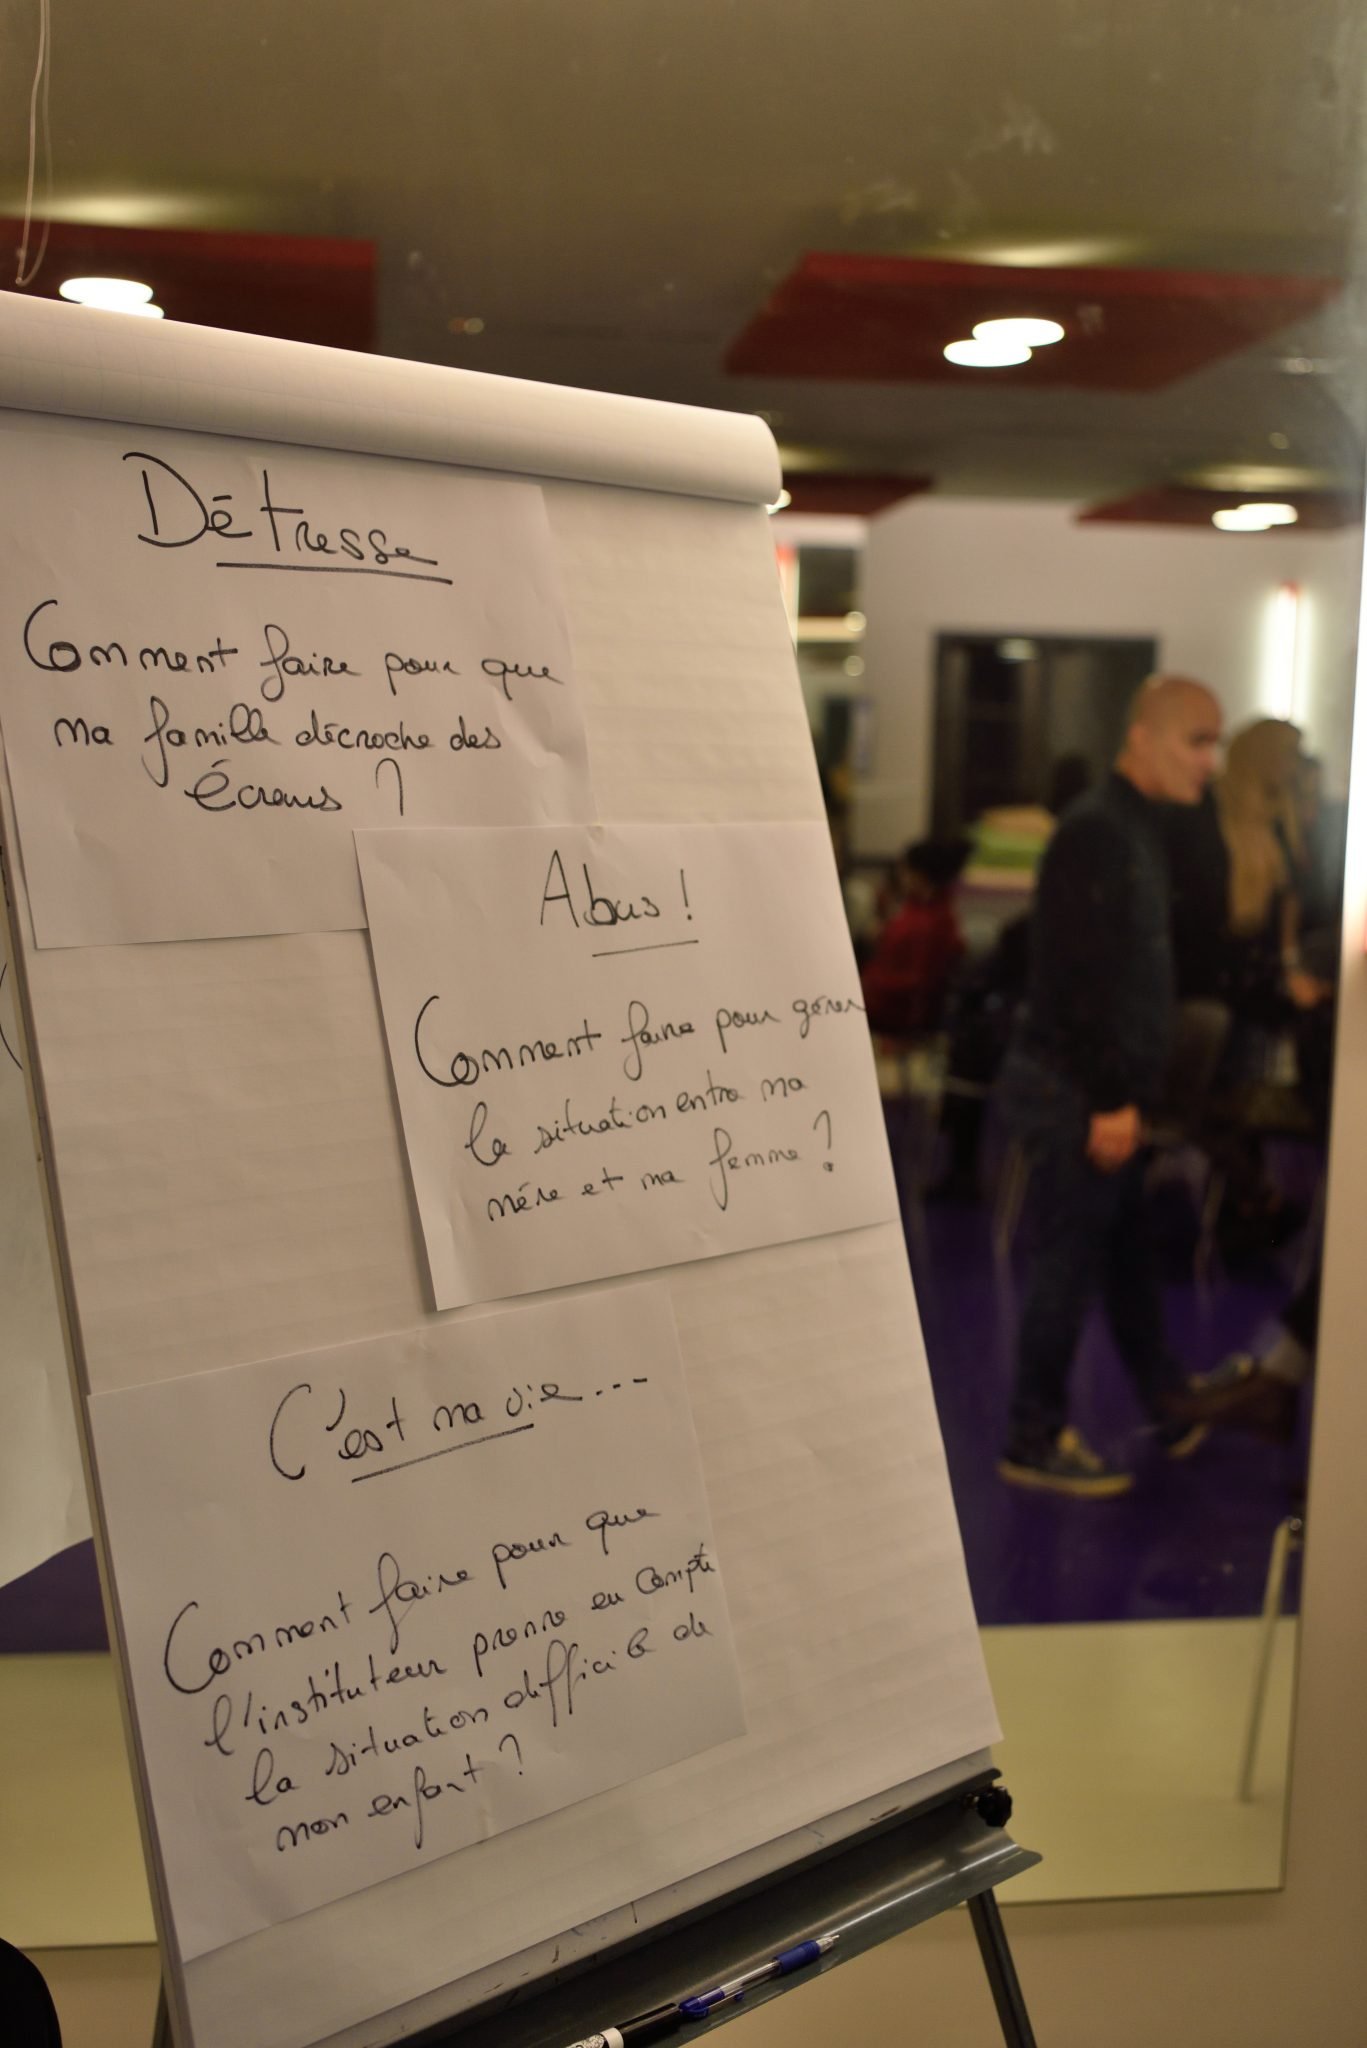 Détresse
Comment faire pour que
ma famille décroche des
écrans ?
Abus !
Comment faire pour gérer
la situation entre ma
mère et ma femme ?
C'est ma vie...
Comment faire pour que
l'instituteur prenne en compte
la situation difficile de
mon enfant ?